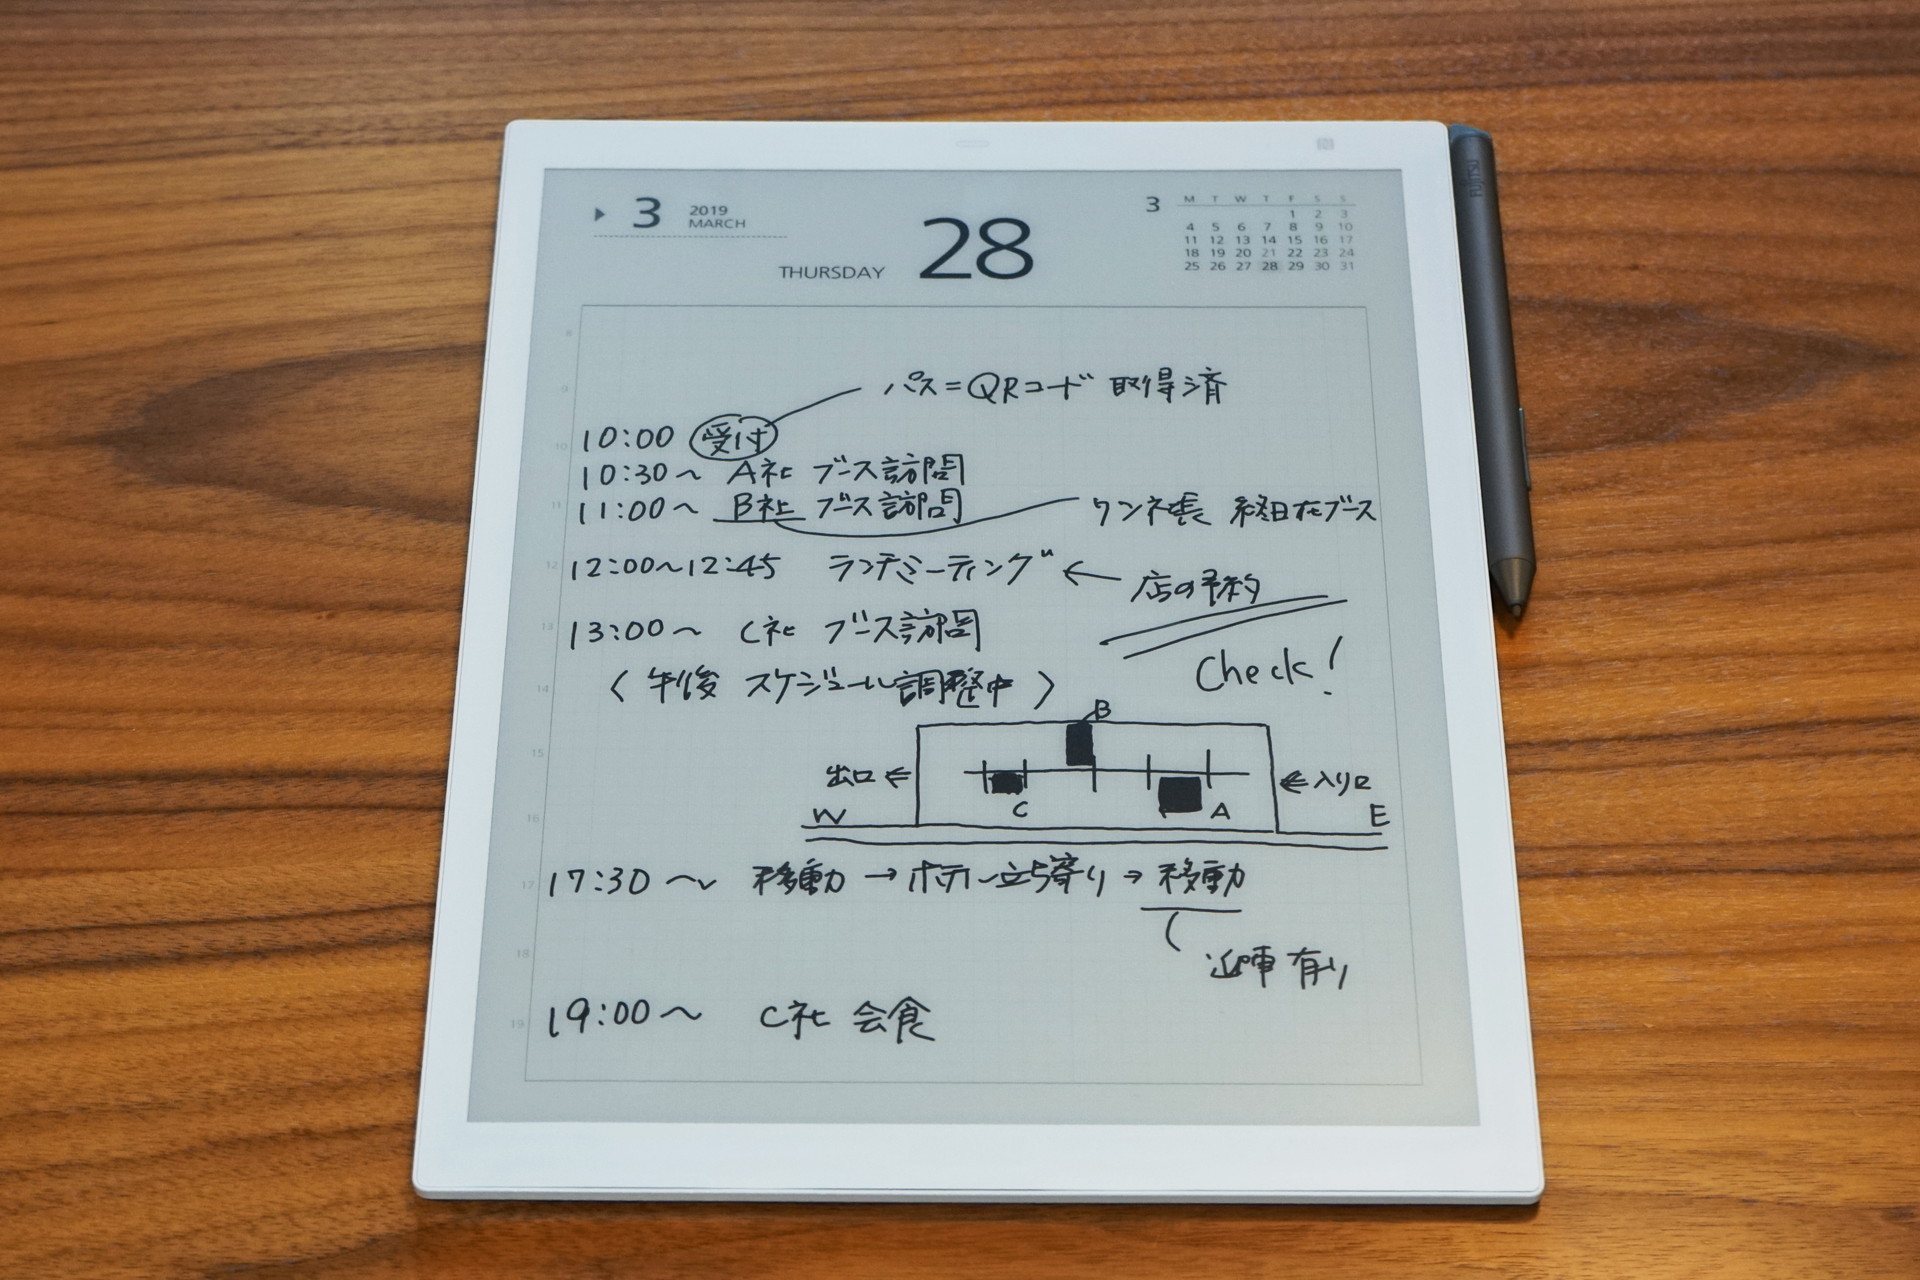 3 2019
MARCH
THURSDAY 28
3 M T W T F S S
1 2 3
4 5 6 7 8 9 10
11 12 13 14 15 16 17
18 19 20 21 22 23 24
25 26 27 28 29 30 31
8
9
10
11
12
13
14
15
16
17
18
19
パス=QRコード 取得済
10:00 受付
10:30～ A社 ブース訪問
11:00～ B社 ブース訪問
ブース
12:00～12:45 ランチミーティング ← 店の予約
13:00～ C社 ブース訪問
Check!
(午後 スケジュール調整中)
B
出口 ← ← 入り口
C A
W E
17:30～ 移動 → ホテル立ち寄り → 移動
有り
19:00～ C社 会食